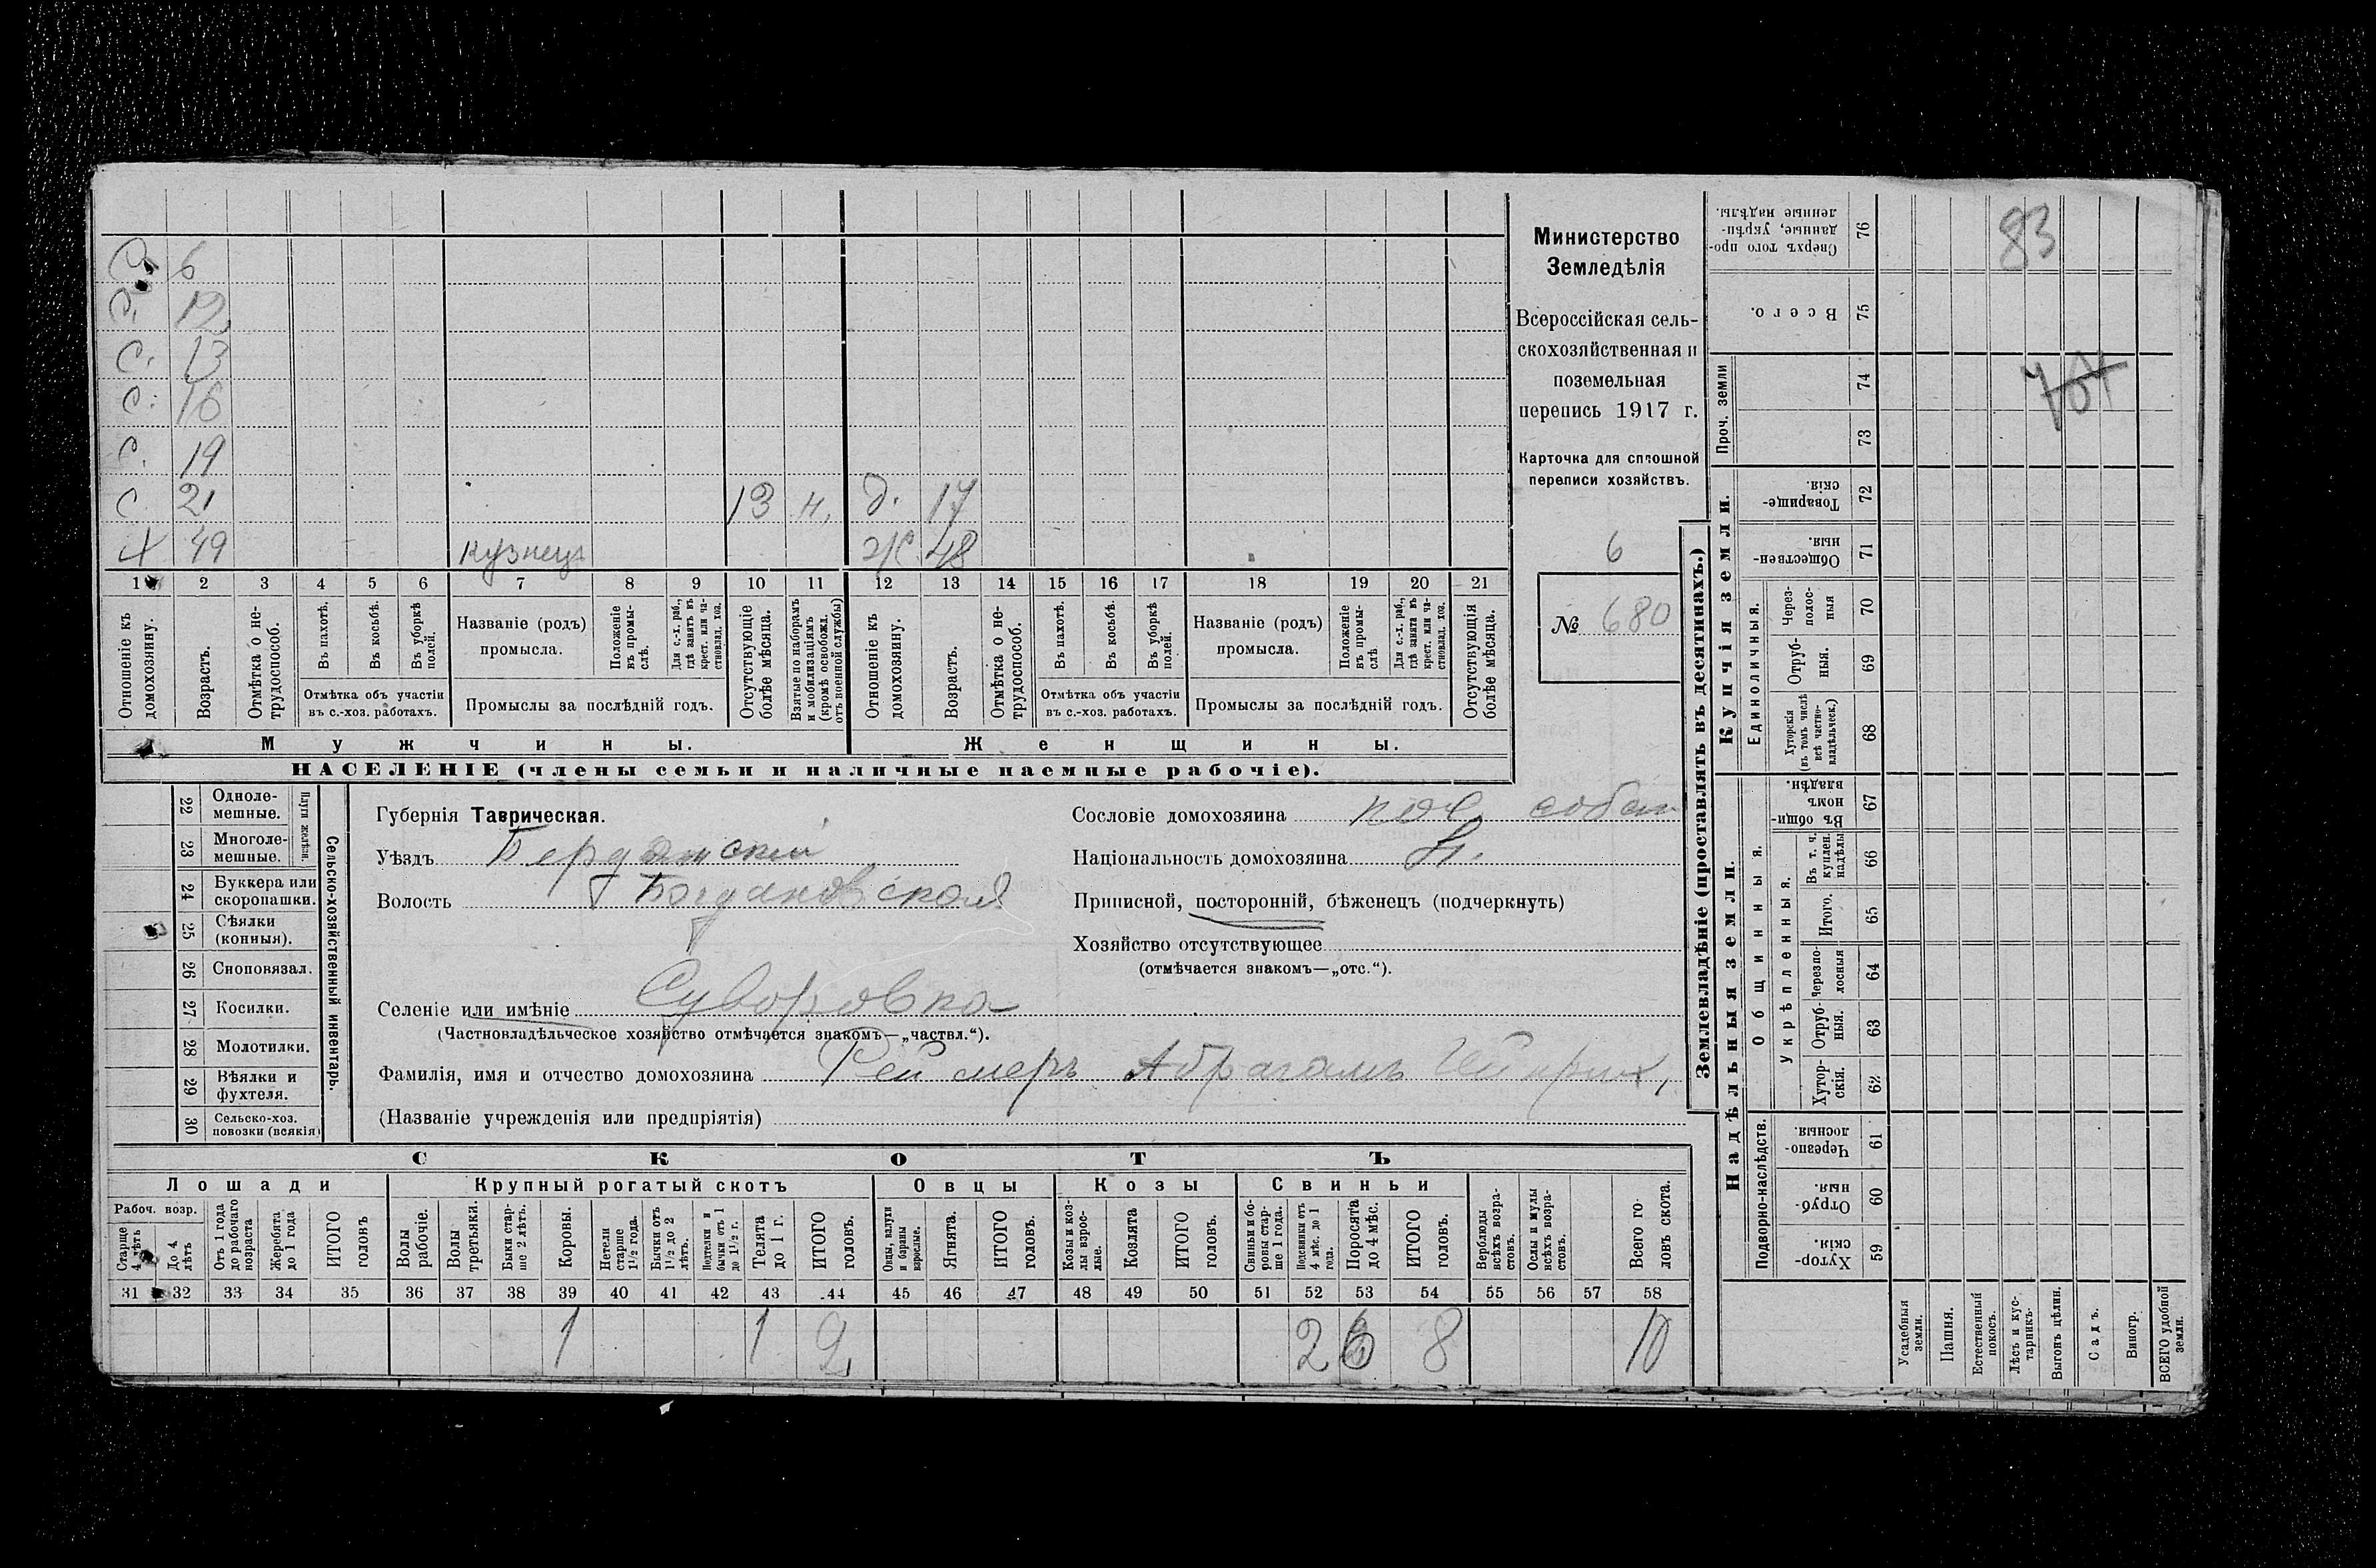 Министерство
Земледѣлія
Всероссійская сель-
скохозяйственная и
поземельная
перепись 1917 г.
Карточка для сплошной
переписи хозяйствъ.
6
№ 680
С. 6
С. 12
С. 13
С. 16
С. 19
С. 21 13 н. д. 17
Х 49 кузнецъ ж 48
1 2 3 4 5 6 7 8 9 10 11 12 13 14 15 16 17 18 19 20 21
Отношеніе къ домохозяину.
Возрастъ.
Отмѣтка о не-трудоспособ.
Въ пахотѣ.
Въ косьбѣ.
Въ уборкѣ полей.
Отмѣтка объ участіи
въ с.-хоз. работахъ.
Названіе (родъ)
промысла.
Положеніе въ промы-слѣ.
Для с.-х. раб., гдѣ занятъ въ крест. или ча-стновлад. хоз.
Промыслы за послѣдній годъ.
Отсутствующіе болѣе мѣсяца.
Взятые по наборамъ и мобилизаціямъ (кромѣ освобожд. отъ военной службы)
Отношеніе къ домохозяину.
Возрастъ.
Отмѣтка о не-трудоспособ.
Въ пахотѣ.
Въ косьбѣ.
Въ уборкѣ полей.
Отмѣтка объ участіи
въ с.-хоз. работахъ.
Названіе (родъ)
промысла.
Положеніе въ промы-слѣ
Для с.-х. раб., гдѣ занята въ крест. или ча-стновлад. хоз.
Промыслы за послѣдній годъ.
Отсутствующія болѣе мѣсяца.
Мужчины.
Женщины.
НАСЕЛЕНІЕ (члены семьи и наличные наемные рабочіе).
22 Одноле-мешные.
23 Многоле-мешные.
Плуги желѣзн.
24 Буккера или скоропашки.
25 Сѣялки (конныя).
26 Сноповязал.
27 Косилки.
28 Молотилки.
29 Вѣялки и фухтеля.
30 Сельско-хоз. повозки (всякія)
Сельско-хозяйственный инвентарь.
Губернія Таврическая.
Уѣздъ Бердянскій
Волость Богдановской
Селеніе или имѣніе Суворовка
(Частновладѣльческое хозяйство отмѣчается знакомъ—„частвл.“).
Фамилія, имя и отчество домохозяина Реймеръ Абрагамъ Гейнрих,
(Названіе учрежденія или предпріятія)
Сословіе домохозяина пос собст
Національность домохозяина Н.
Приписной, посторонній, бѣженецъ (подчеркнуть)
Хозяйство отсутствующее
(отмѣчается знакомъ—„отс.“).
СКОТЪ
Лошади
Крупный рогатый скотъ
Овцы
Козы
Свиньи
Рабоч. возр.
Старше 4 лѣтъ
До 4 лѣтъ
Отъ 1 года до рабочаго возраста
Жеребята до 1 года
ИТОГО головъ
Волы рабочіе.
Волы третьяки.
Быки стар-ше 2 лѣтъ.
Коровы.
Нетели старше 1½ года.
Бычки отъ 1½ до 2 лѣтъ.
Подтелки и бычки отъ 1 до 1½ г.
Телята до 1 г.
ИТОГО головъ.
Овцы, валухи и бараны взрослые.
Ягнята.
ИТОГО головъ.
Козы и коз-лы взрос-лые.
Козлята
ИТОГО головъ.
Свиньи и бо-ровы стар-ше 1 года.
Подсвинки отъ 4 мѣс. до 1 года.
Поросята до 4 мѣс.
ИТОГО головъ.
Верблюды всѣхъ возра-стовъ.
Ослы и мулы всѣхъ возра-стовъ.
Всего го-ловъ скота.
31 32 33 34 35 36 37 38 39 40 41 42 43 44 45 46 47 48 49 50 51 52 53 54 55 56 57 58
1 1 2 2 6 8 10
Землевладѣніе (проставлять въ десятинахъ.)
Надѣльныя земли.
Купчія земли.
Проч. земли
Подворно-наслѣдств.
Общинныя.
Укрѣпленныя.
Единоличныя.
Сверхъ того про-данные, укрѣп-ленные надѣлы. 76
Всего. 75
74
73
Товарище-скія. 72
Обществен-ныя. 71
Через-полос-ныя 70
Отруб-ныя. 69
Хуторскія (въ томъ числѣ всѣ частно-владѣльческ.) 68
Въ общи-номъ владѣн. 67
Въ т. ч. куплен. надѣлы 66
Итого. 65
Черезпо-лосныя 64
Отруб-ныя. 63
Хутор-скія. 62
Черезпо-лосныя. 61
Отруб-ныя. 60
Хутор-скія. 59
Усадебныя земли.
Пашня.
Естественный покосъ.
Лѣсъ и кус-тарникъ.
Выгонъ цѣлин.
Садъ.
Виногр.
ВСЕГО удобной земли.
83